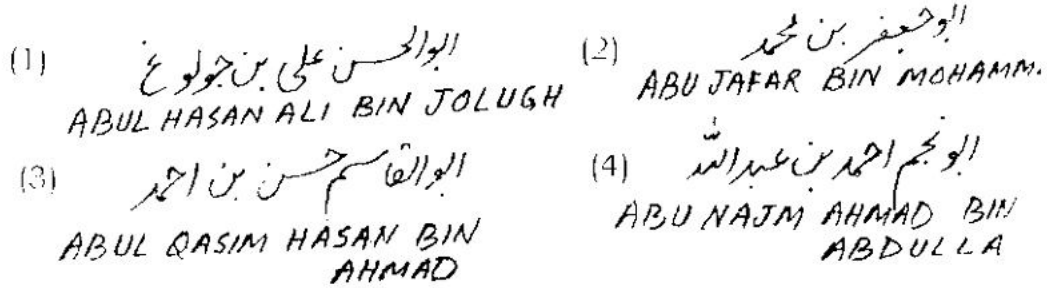 (1) ابوالحسن علی بن جولوغ
ABUL HASAN ALI BIN JOLUGH
(2) ابوجعفر بن محمد
ABU JAFAR BIN MOHAMM.
(3) ابوالقاسم حسن بن احمد
ABUL QASIM HASAN BIN
AHMAD
(4) ابونجم احمد بن عبدالله
ABU NAJM AHMAD BIN
ABDULLA